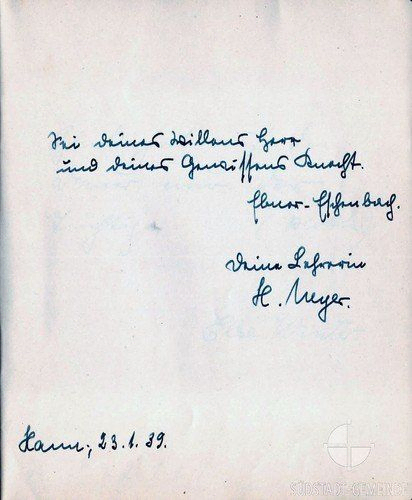 Sei deines Willens Herr
und deines Gewissens Knecht.
Ebner-Eschenbach.
Deine Lehrerin
H. Meyer.
Hann., 23.1.39.
SÜDSTADT-GEMEINDE